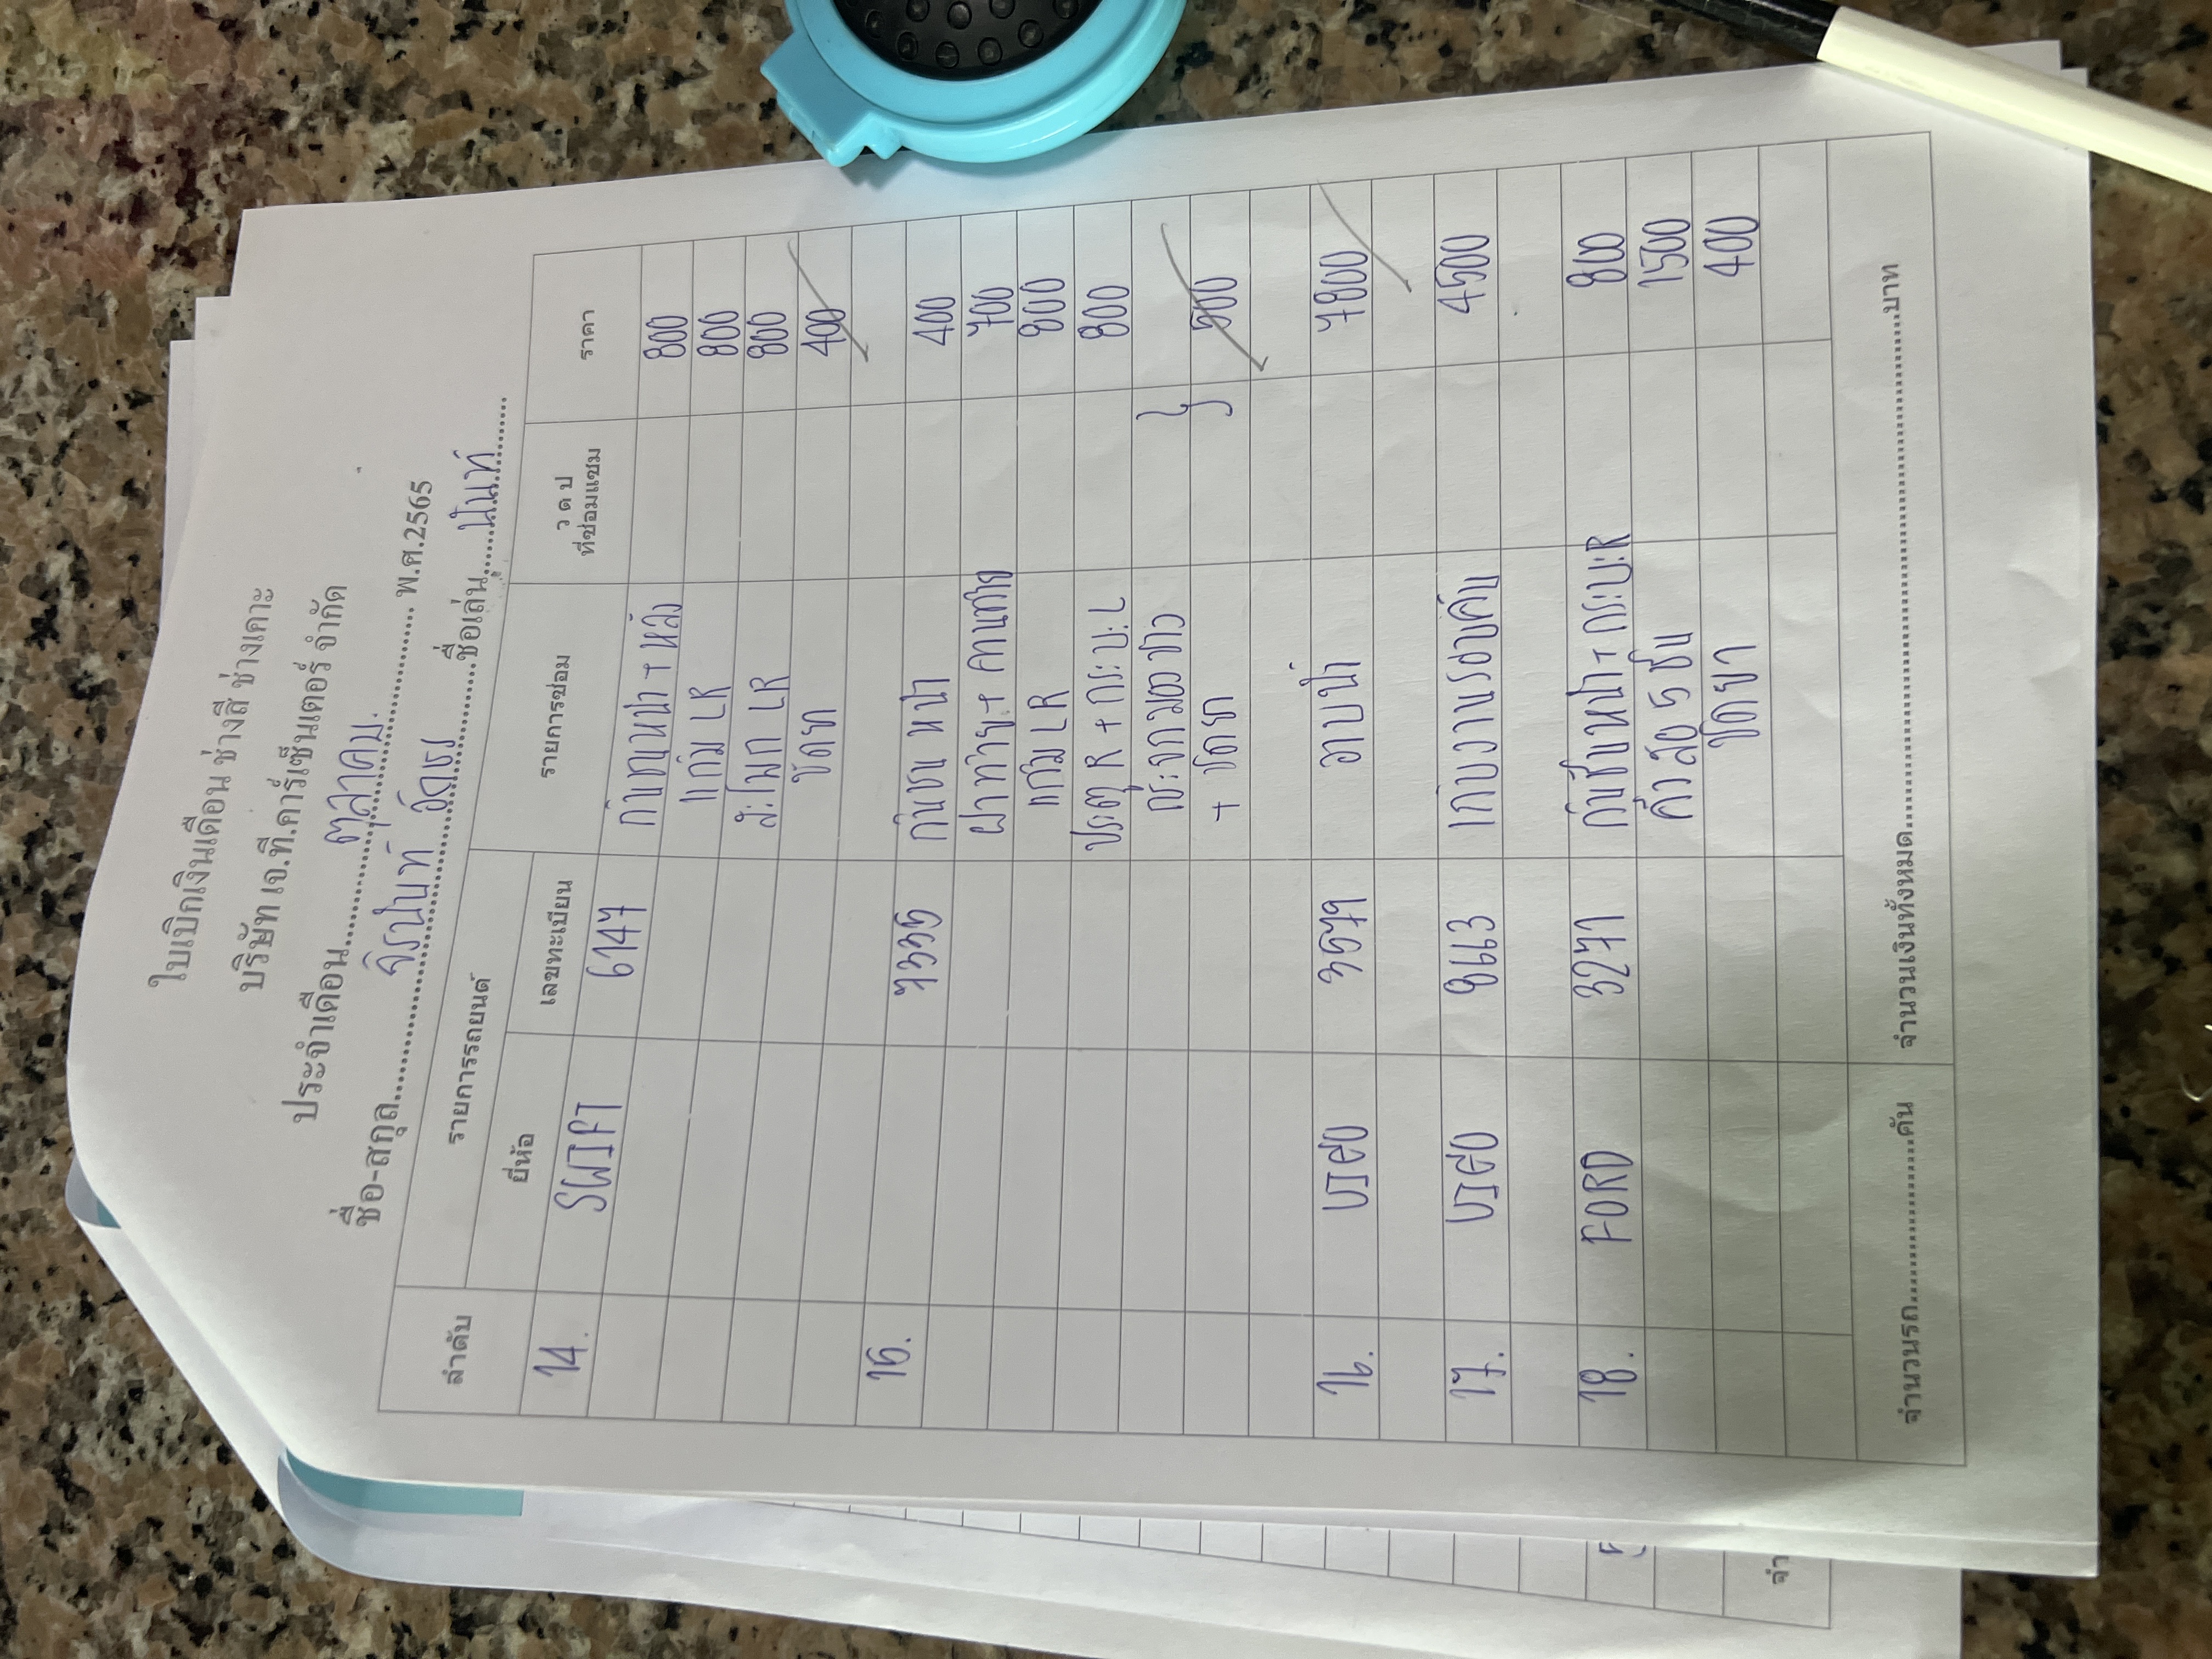 ใบเบิกเงินเดือน ช่างสี ช่างเคาะ
บริษัท เจ.ที.คาร์เซ็นเตอร์ จำกัด
ประจำเดือน ตุลาคม. พ.ศ.2565
ชื่อ-สกุล จิรนันท์ ชื่อเล่น นันท์
ลำดับ รายการรถยนต์ รายการซ่อม ว ด ป ที่ซ่อมแซม ราคา
ยี่ห้อ เลขทะเบียน
14. SWIFT 6147 กันชนหน้า + หลัง 800
แก้ม LR 800
800
ขัดยา 400
15. 7335 กันชน หน้า 400
ฝาท้าย + 700
แก้ม LR 800
ประตู R + กระบะ L 800
+ ขัดยา 500
16. 3579 อาบน้ำ 7800
17. 8613 เก็บงานรอบคัน 4500
18. FORD 3271 กันชนหน้า + กระบะ R 800
1500
ขัดยา 400
จำนวนรถ คัน จำนวนเงินทั้งหมด บาท